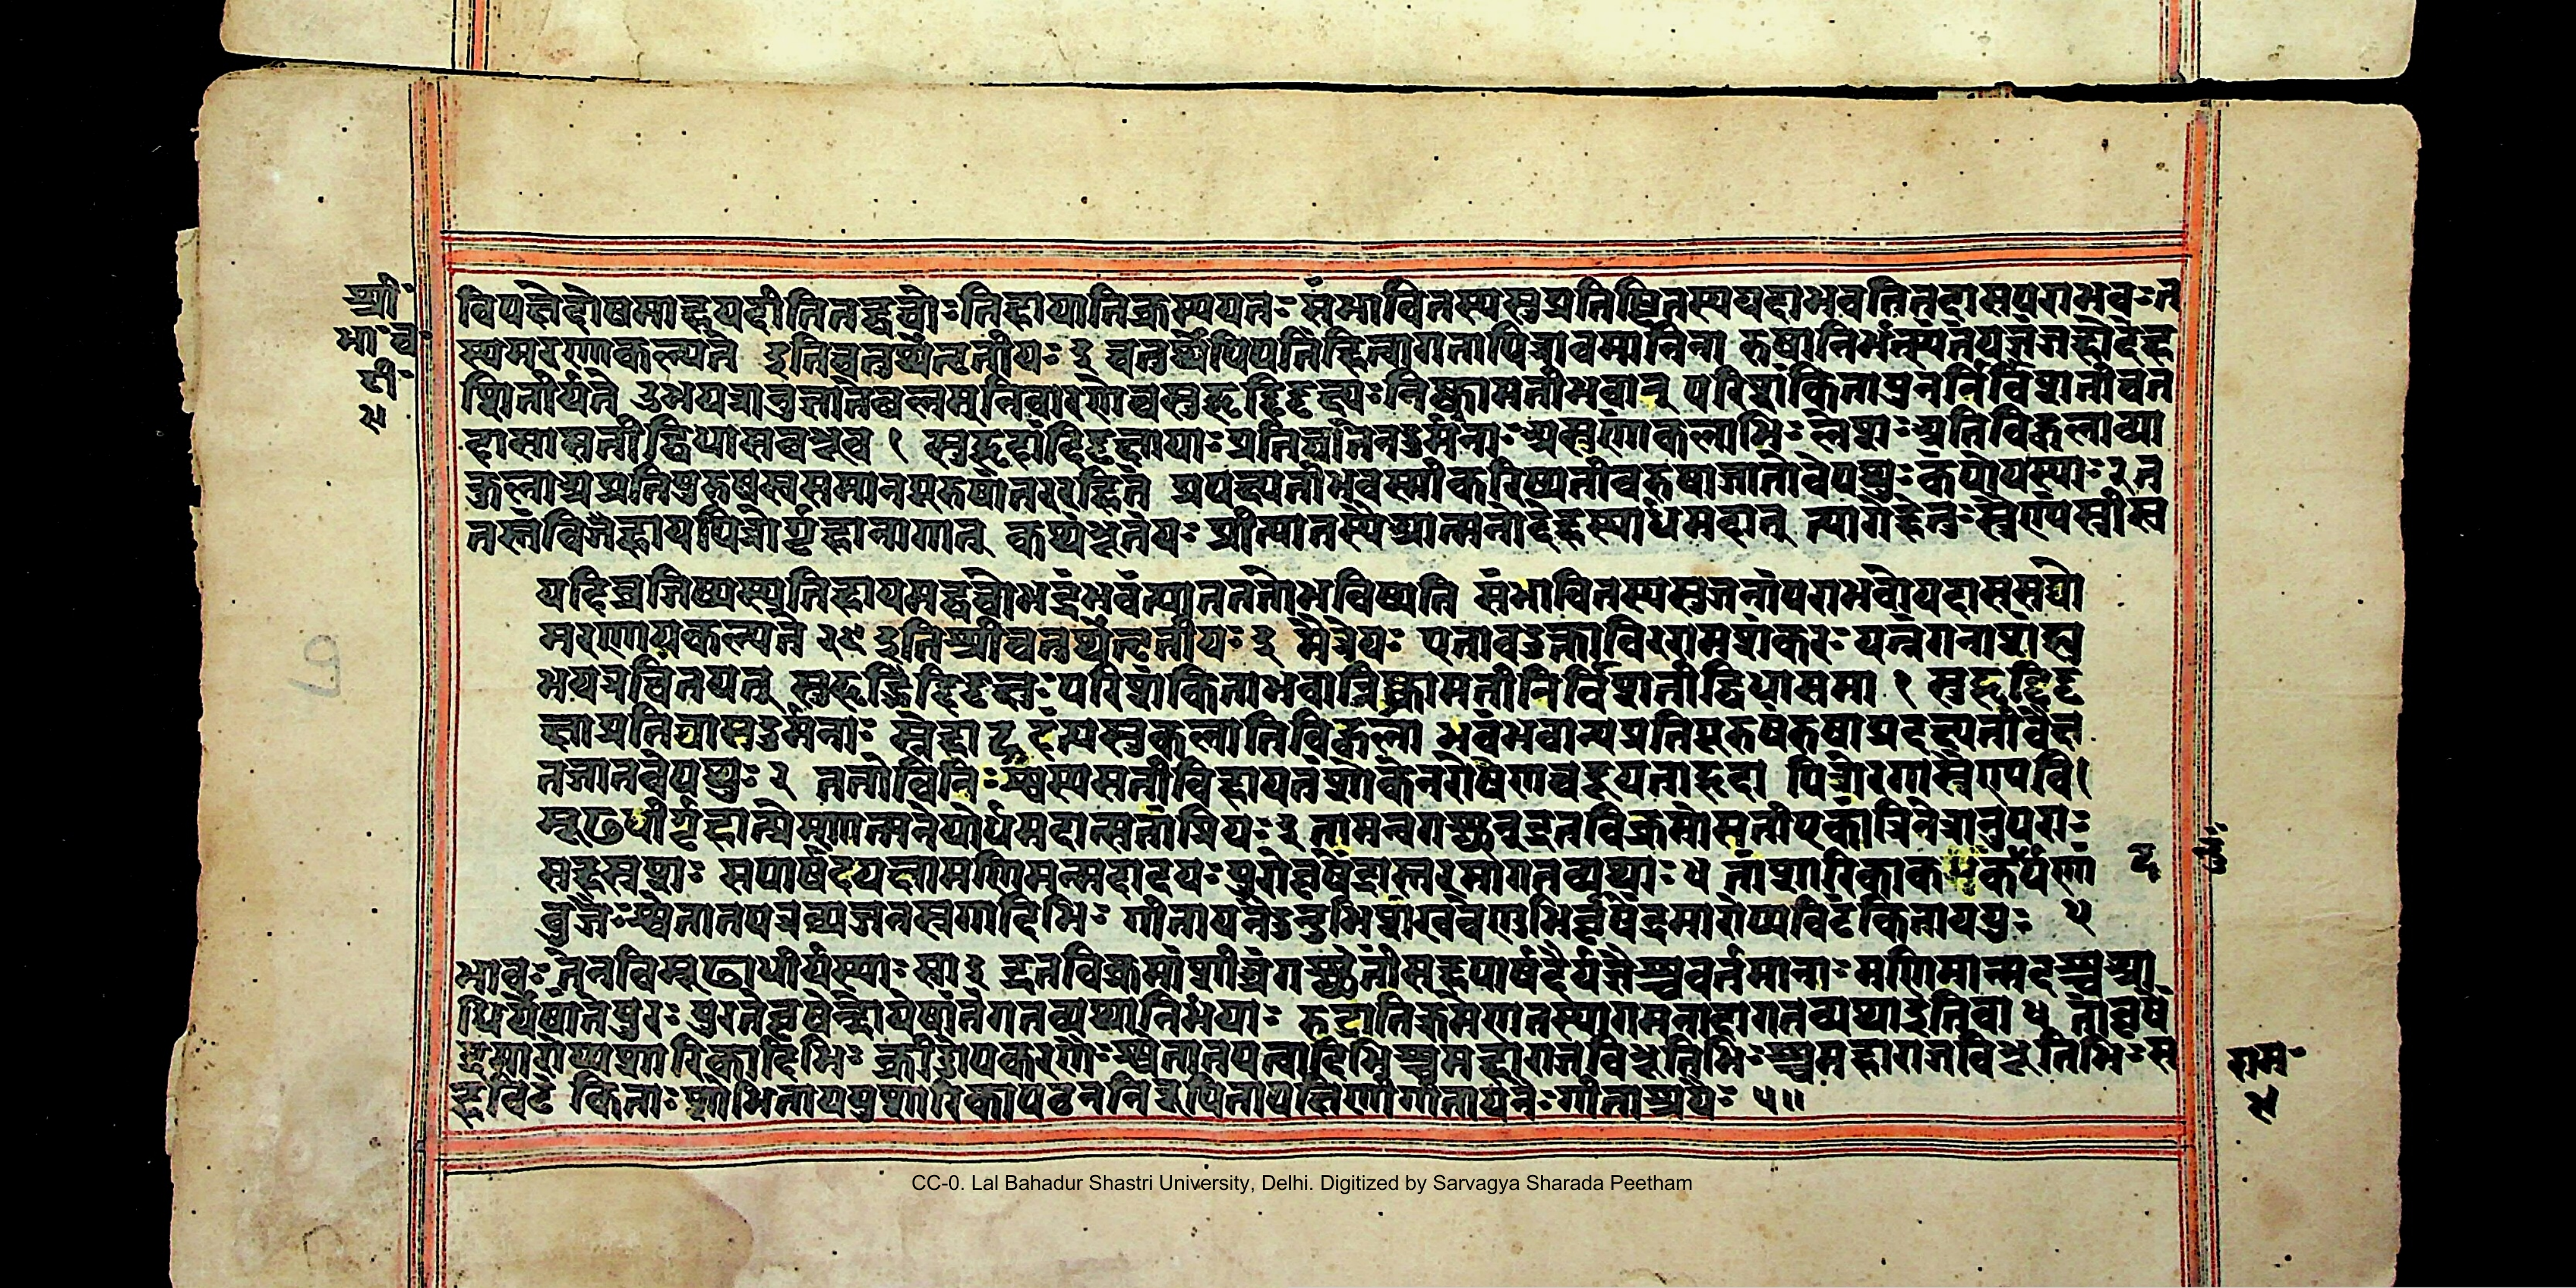 श्री॰
भा॰च॰
टी॰
४
विपक्षेदोषमाहयदीतितद्वचोःतिहायातिक्रम्ययतः संभावितस्यसुप्रतिष्ठितस्ययदाभवतितदासपराभवःत
स्यमरणायकल्पते इतिचतुर्थेतृतीयः ३ चतुर्थेपिपतिंहित्वागतापित्रावमानिता रुषानिर्भत्स्यतंयज्ञेजहौदेह
मितीर्यते उभयत्रानुज्ञातेबलमुनिवारणेचसुहृद्दिदृक्षुःनिष्क्रामतीभवात् परिशंकितापुनर्निर्विशतीवत
दासासतीद्विधासबभूव १ सुहृदांदिदृक्षायाःप्रतिघातेनदुर्मनाःअश्रुणःकलाभिःलेशैःअतिविह्वलाव्या
कुलाअप्रतिपुरुषस्वसमानपुरुषांतररहितं प्रधक्ष्यतीभवस्मीकरिष्यतीवरुषाजातोवेपथुःकंपोयस्याः२त
तस्तंविजेहाययपित्रोर्गृहान्अगात् कथंभूतयःप्रीत्यातस्यैआत्मनोदेहस्यार्धमदात् त्यागेहेतुःस्त्रैणंपस्त्रीस्व
यदिव्रजिष्यस्यतिहायमद्वचोभद्रंभवत्यानततोभविष्यति संभावितस्यस्वजनात्पराभवोयदाससद्यो
मरणायकल्पते २५ इतिश्रीचतुर्थेतृतीयः ३ मैत्रेयः एतावदुक्त्वाविररामशंकरः पत्न्यंगनाशंह्यु
भयत्रचिंतयन् सुहृद्दिदृक्षुःपरिशंकिताभवान्निष्क्रामतीनिर्विशतीद्विधाससा १ सुहृद्दिदृ
क्षाप्रतिघातदुर्मनाः स्नेहाद्रुदंत्यश्रुकलातिविह्वला भवंभवान्यप्रतिपुरुषंरुषाप्रधक्ष्यतीवैक्ष
तजातवेपथुः २ ततोविनिःश्वस्यसतीविहायतंशोकेनरोषेणचदूयताहृदा पित्रोरगात्स्त्रैणवि
मूढधीर्गृहान्प्रेम्णात्मनोयोर्धमदात्सतांप्रियः ३ तामन्वगच्छन्द्रुतविक्रमांसतीमेकांत्रिनेत्रानुचराः
सहस्रशः सपार्षदयक्षामणिमन्मदादयःपुरोवृषेंद्रास्तरसागतव्यथाः ४ तांशारिकाकंदुकदर्पणां
बुजैःश्वेतातपत्रव्यजनस्रगादिभिः गीतायनैर्दुंदुभिशंखवेणुभिर्वृषेंद्रमारोप्यविटंकिताययुः ५
भावःतेनविमूढाधीर्यस्याः सा ३ द्रुतविक्रमांशीघ्रंगच्छंतींसहपार्षदैर्यक्षैश्चवर्तमानाःमणिमान्मदश्चआ
धिर्येषांतेपुरः पुरतोवृषेन्द्रोयेषांतेगतव्यथानिर्भयाः रुद्रातिक्रमेणतस्यागमनाद्वागतव्यथाइतिवा ४ तांवृषें
द्रमारोप्यशारिकादिभिः क्रीडोपकरणैःश्वेतातपत्रादिभिश्चमहाराजविभूतिभिःश्चमहाराजविभूतिभिःस
हविटंकिताःशोभिताययुःशारिकापठननिरूपितापक्षिणीगीतायनैःगीताश्रयैः ५॥
राम॰
४
CC-0. Lal Bahadur Shastri University, Delhi. Digitized by Sarvagya Sharada Peetham